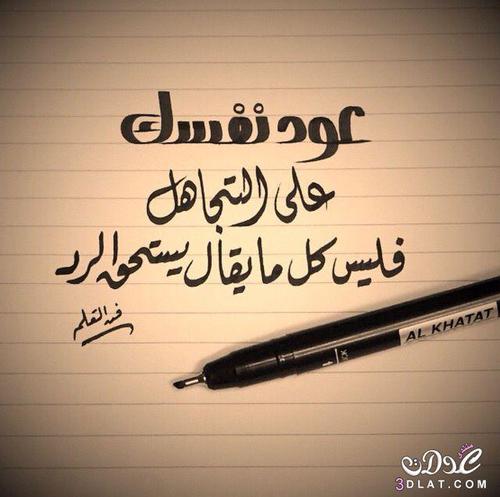 عود نفسك
على التجاهل
فليس كل ما يقال يستحق الرد
AL KHATAT
3DLAT.COM